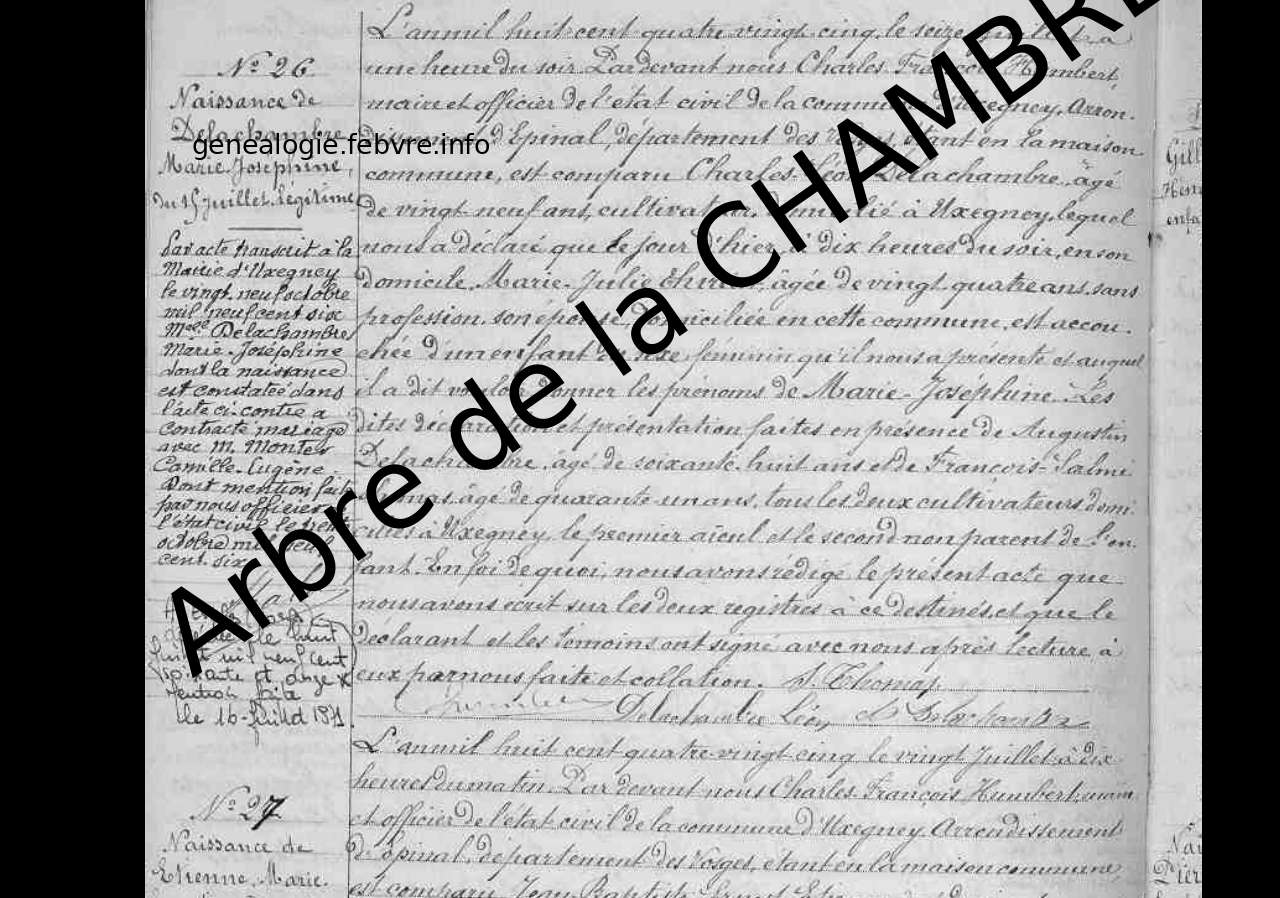 Nº 26
Naissance de
Delachambre
Marie-Joséphine,
du 15 Juillet. légitime
Par acte transcrit à la
Mairie d'Uxegney
le vingt neuf octobre
mil neuf cent six
Melle Delachambre
Marie-Joséphine
dont la naissance
est constatée dans
l'acte ci-contre a
contracté mariage
avec M.
Camille-Eugène.
Dont mention faite
par nous officier
l'état civil le trente
octobre mil neuf
cent six
le huit
Juillet mil neuf cent
soixante et onze
mention faite
le 16 Juillet 1971.
L'an mil huit cent quatre vingt cinq, le seize juillet à
une heure du soir Par devant nous Charles François Humbert,
maire et officier de l'état civil de la commune d'Uxegney, Arron-
dissement d'Epinal, département des Vosges, étant en la maison
commune, est comparu Charles-Léon Delachambre, âgé
de vingt neuf ans, cultivateur, domicilié à Uxegney, lequel
nous a déclaré que le jour d'hier, à dix heures du soir, en son
domicile, Marie-Julie, âgée de vingt quatre ans, sans
profession, son épouse, domiciliée en cette commune, est accou-
chée d'un enfant du sexe féminin qu'il nous a présenté et auquel
il a dit vouloir donner les prénoms de Marie-Joséphine. Les
dites déclaration et présentation faites en présence de Augustin
Delachambre, âgé de soixante-huit ans et de François-
Thomas, âgé de quarante-un ans, tous les deux cultivateurs domi-
ciliés à Uxegney, le premier aïeul et le second non parent de l'en-
fant. En foi de quoi, nous avons rédigé le présent acte que
nous avons écrit sur les deux registres à ce destinés, et que le
déclarant et les témoins ont signé avec nous après lecture à
eux par nous faite et collation. S. Thomas
Delachambre Léon A Delachambre
Nº 27
Naissance de
Etienne, Marie.
L'an mil huit cent quatre-vingt cinq le vingt Juillet à dix
heures du matin. Par devant nous Charles François Humbert, maire
et officier de l'état civil de la commune d'Uxegney Arrondissement
d'Epinal, département des Vosges, étant en la maison commune,
est comparu Jean Baptiste
Gill
enfa
Nai
Pier
genealogie.febvre.info
Arbre de la CHAMBRE